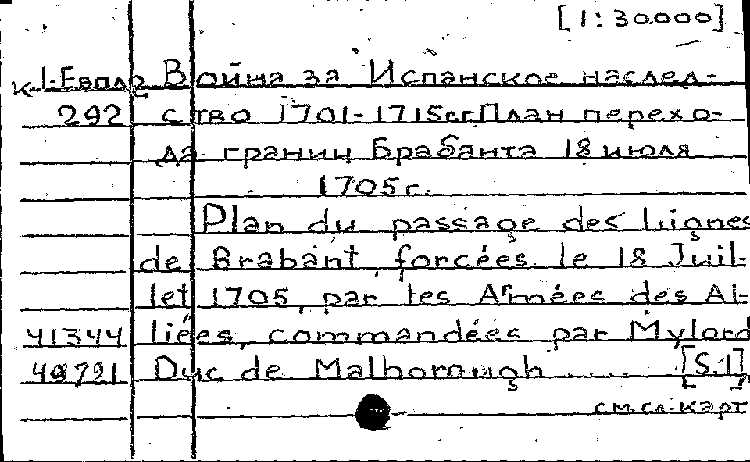 [1:30000]
К 1-Евпл2 Война за Испанское наслед-
292 ство 1701-1715гг. План перехо-
да границ Брабанта 18 июля
1705 г.
Plan du passage des Lignes
de Brabant, forcées le 18 Juil-
let 1705, par les Armées des Al-
41344 liées, commandées par Mylord
Duc de Malborough ..... [S.l]
см.сл.карт